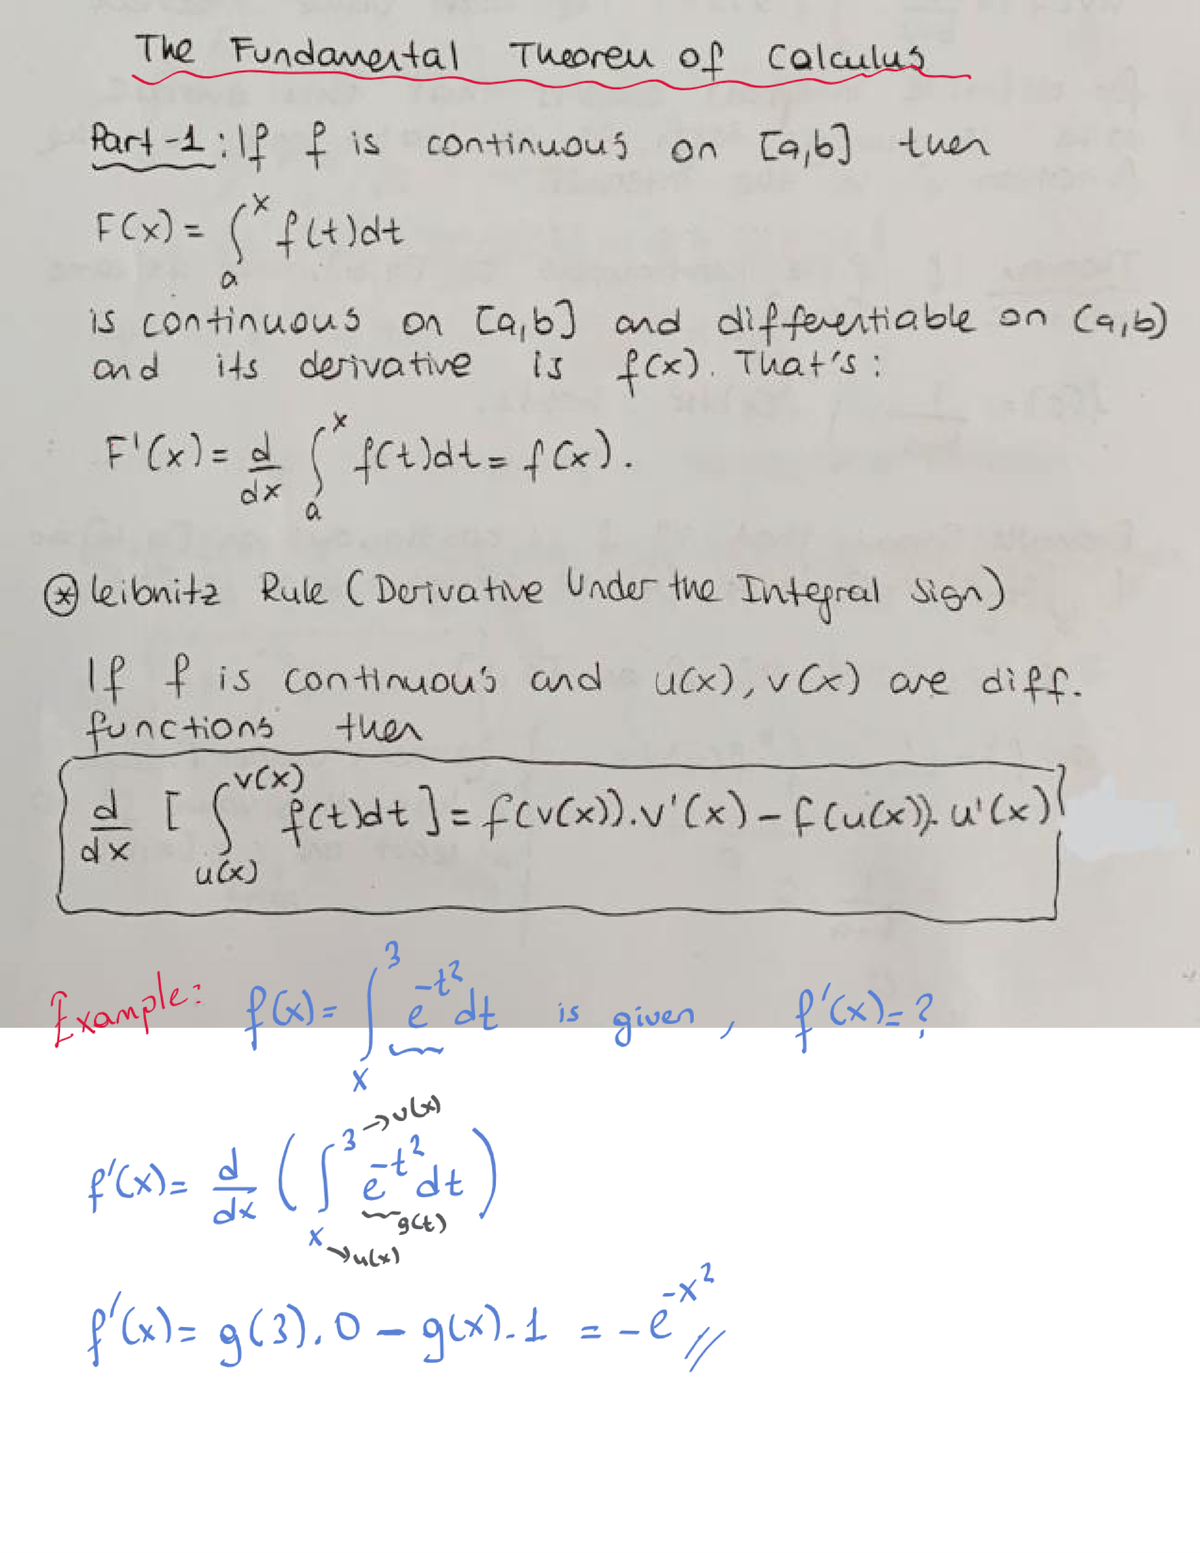 The Fundamental Theorem of Calculus
Part-1: If f is continuous on [a,b] then
F(x) = ∫ₐˣ f(t)dt
is continuous on [a,b] and differentiable on (a,b)
and its derivative is f(x). That's:
F'(x) = d/dx ∫ₐˣ f(t)dt = f(x).
⊛ Leibnitz Rule (Derivative Under the Integral Sign)
If f is continuous and u(x), v(x) are diff.
functions then
d/dx [∫_{u(x)}^{v(x)} f(t)dt] = f(v(x)).v'(x) - f(u(x)).u'(x)
Example: f(x) = ∫ₓ³ e^{-t²} dt is given, f'(x)=?
f'(x) = d/dx (∫ₓ³ e^{-t²} dt)
→ v(x)
g(t)
→ u(x)
f'(x) = g(3).0 - g(x).1 = -e^{-x²} //